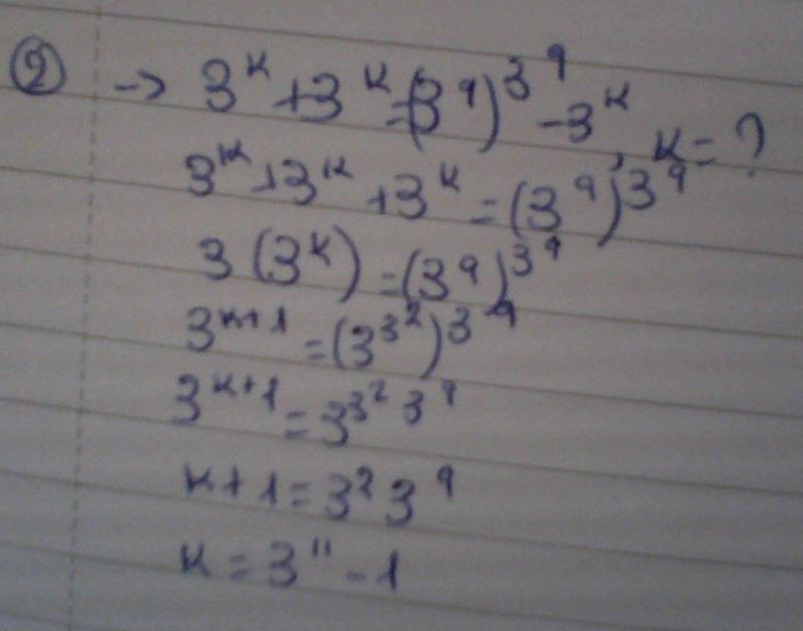 ② → 3^k + 3^k = (3^9)^3^9 - 3^k, k = ?
3^k + 3^k + 3^k = (3^9)^3^9
3(3^k) = (3^9)^3^9
3^k+1 = (3^3^2)^3^9
3^k+1 = 3^3^2 3^9
k + 1 = 3^2 3^9
k = 3^11 - 1